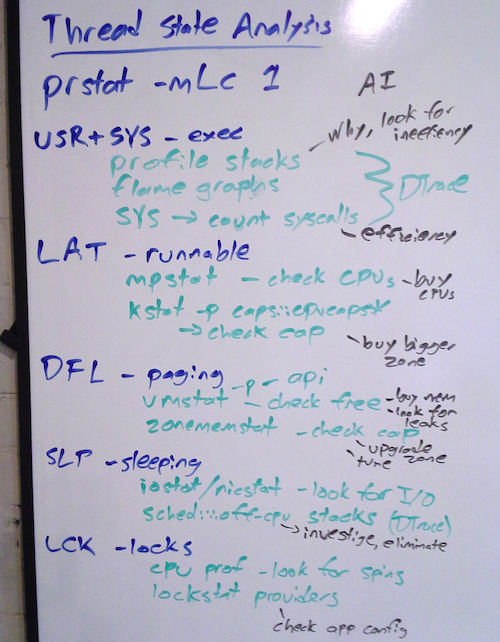 Thread State Analysis
prstat -mLc 1
AI
USR+SYS - exec
- why, look for
inefficency
profile stacks
flame graphs
DTrace
SYS → count syscalls
- efficiency
LAT - runnable
mpstat - check CPUs
- buy
CPUs
kstat -p caps::cpucaps*
→ check cap
- buy bigger
zone
DFL - paging
vmstat -p - api
- check free
- buy mem
- look for
leaks
zonememstat - check cap
- upgrade
zone
- tune
SLP - sleeping
iostat/nicstat - look for I/O
sched:::off-cpu stacks (DTrace)
→ investige, eliminate
LCK - locks
cpu prof - look for spins
lockstat providers
- check app config